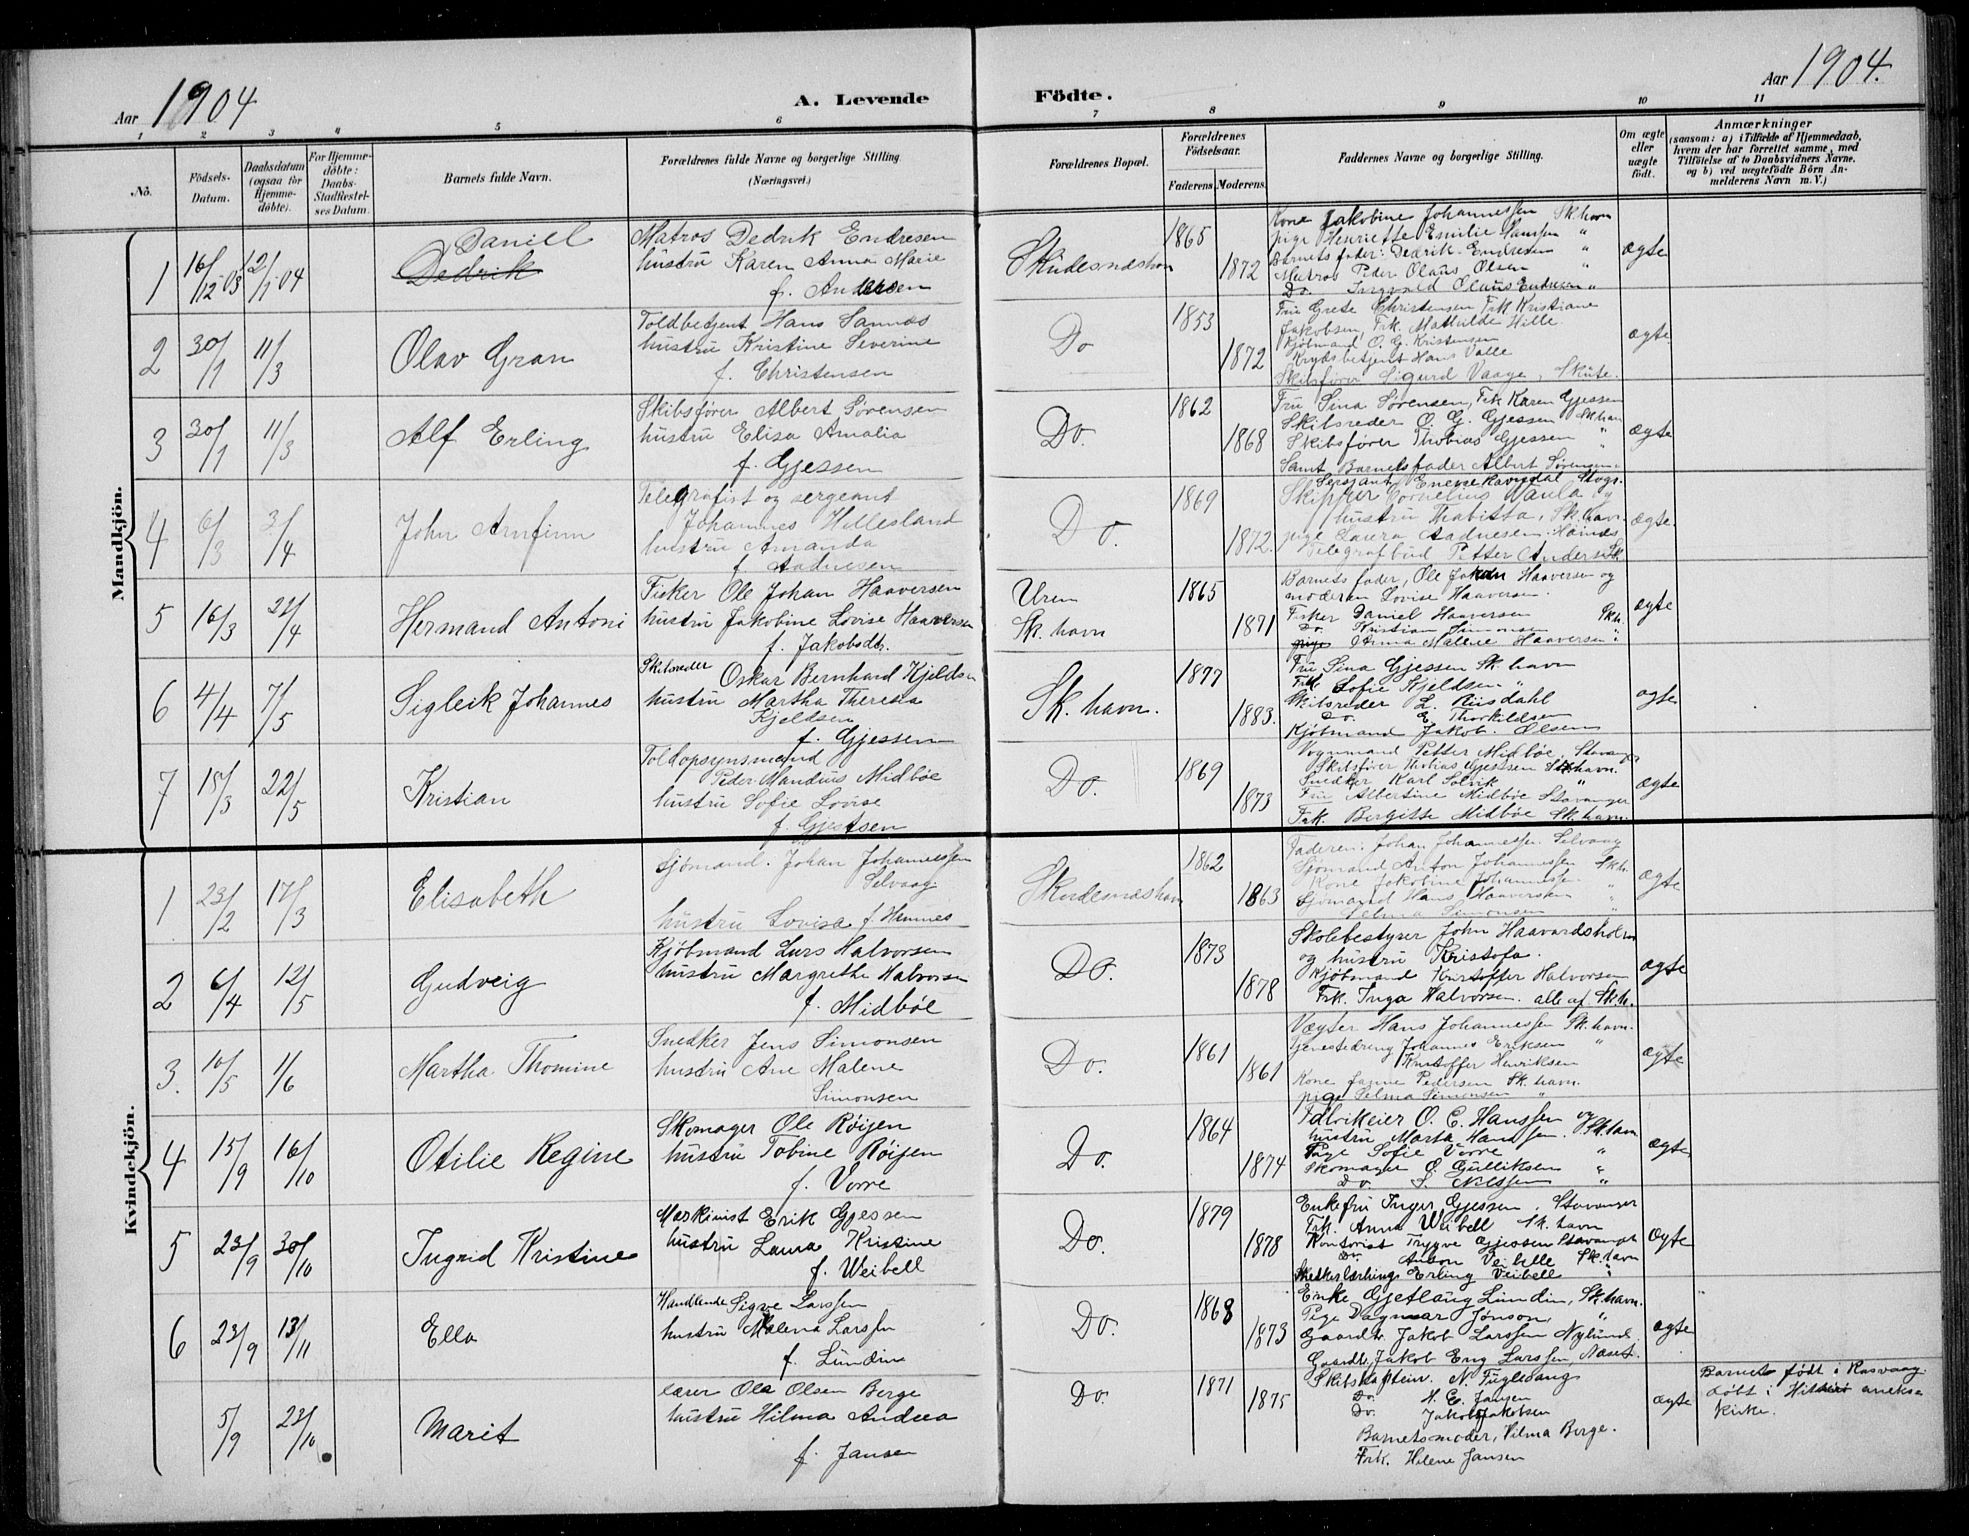 Aar 1904
A. Levende
Födte.
Aar 1904.
1 2 3 4 5 6 7 8 9 10 11
No.
Födsels-
Datum.
Daabsdatum
(ogsaa for
Hjemme-
döbte).
For Hjemme-
döbte:
Daabs-
Stadfæstel-
ses Datum.
Barnets fulde Navn.
Forældrenes fulde Navne og borgerlige Stilling.
(Næringsvei.)
Forældrenes Bopæl.
Forældrenes
Födselsaar.
Faderens. Moderens.
Faddernes Navne og borgerlige Stilling.
Om ægte
eller
uægte
födt.
Anmærkninger
(saasom: a) i Tilfælde af Hjemmedaab,
hvem der har forrettet samme, med
Tilföielse af to Daabsvidners Navne,
og b) ved uægtefödte Börn An-
melderens Navn m. V.)
Mandkjön.
1 16/12 03 2/1 04
Daniel
Dedrik
Matros Dedrik Endresen
hustru Karen Anna Marie
f. Andersen
Skudesneshavn
1865
1872
Kone Jakobine Johannessen Sk.havn
pige Henriette Emilie Hansen "
Barnets fader: Dedrik Endresen "
Matros Peder Olaus Olsen "
Do. Ingvald Olaus Endresen "
ægte
2 30/1 11/3
Olav Gran
Toldbetjent Hans Sannes
hustru Kristine Severine
f. Christensen
Do
1853
1872
Fru Grete Christensen Frk Kristiane
Jakobsen, Frk. Mathilde Hille
Kjöbmand O. G. Kristensen
Krydsbetjent Hans Valle
Skibsfører Sigurd Vaage, Skute.
ægte
3 30/1 11/3
Alf Erling
Skibsfører Albert Sørensen
hustru Elisa Amalia
f. Gjessen
Do.
1862
1868
Fru Sina Sørensen, Frk Karen Gjessen
Skibsreder O. G. Gjessen Sk.havn
Skibsfører Thobias Gjessen "
Samt Barnets fader Albert Sørensen
ægte
4 6/3 3/4
John Arnfinn
Telegrafist og sergeant
Johannes Hillesland
hustru Amanda
f. Aadnesen
Do.
1869
1872.
Skipper Cornelius Vaula og
hustru Thabitta, Sk.havn.
pige Laura Aadnesen
Telegrafbud Petter Andersen
ægte
5 16/3 22/4
Hermand Antoni
Fisker Ole Johan Haaversen
hustru Jakobine Lovise Haaversen
f. Jakobsdtr.
Uren
Sk. havn
1865
1871
Barnets fader, Ole Johan Haaversen og
moderen Lovise Haaversen.
Fisker Daniel Haaversen Skh.
Do. Kristian Simonsen
pige Anna Malene Haaversen "
ægte
6 4/4 7/5
Sigleik Johannes
Skibsreder Oskar Bernhard Kjeldsen
hustru Martha Theresa
Kjeldsen
f. Gjessen
Sk. havn.
1877
1883.
Fru Sina Gjessen Sk. havn
Frk. Sofie Kjeldsen "
Skibsreder L. Riisdahl
Do. E. Thorkildsen
Kjöbmand Jakob. Olsen
ægte
7 15/3 22/5
Kristian
Toldopsynsmand
Peder Mandius Midböe
hustru Sofie Lovise
f. Gjertsen
Do.
1869
1873
Vognmand Petter Midböe, Stavanger
Skibsfører Thobias Gjertsen Sk.havn.
Snedker Karl Solvik "
Fru Albertine Midböe Stavanger
Frk. Bergitte Midböe Sk.havn.
ægte
Kvindekjön.
1 23/2 17/3
Elisabeth
Sjömand. Johan Johannessen
Selvaag.
hustru Lovisa f. Hannes
Skudesneshavn
1862
1863
Faderen: Johan Johannessen Selvaag
Sjömand Anton Johannessen Skh.
Kone Jakobine Johannessen "
Sjömand Hans Haaversen "
Selma Simonsen "
ægte
2 6/4 12/5
Gudveig
Kjöbmand Lars Halvorsen
hustru Margrethe Halvorsen
f. Midböe
Do.
1873
1878
Skolebestyrer John Haavardsholm
og hustru Kristofa.
Kjöbmand Kristoffer Halvorsen
Frk. Inga Halvorsen. alle af Sk.h.
ægte
3. 10/5 1/6
Martha Thomine
Snedker Jens Simonsen
hustru Ane Malene
Simonsen
Do.
1861
1861
Vægter Hans Johannessen Sk. havn.
Tjenestedreng Johannes Eriksen "
Kristoffer Henriksen
Kone Janne Pedersen Sk. havn.
pige Selma Simonsen "
ægte
4 15/9 16/10
Otilie Regine
Skomager Ole Röijen
hustru Tobine Röijen
f. Vorre
Do.
1864
1874
Fabrikeier O. E. Hanssen og
hustru Marta Hanssen. Sk.havn
Pige Sofie Vorre "
Skomager O. Gulliksen "
Do. S. Nilssen "
ægte
5 23/9 30/10
Ingrid Kristine
Maskinist Erik Gjessen
hustru Laura Kristine
f. Weibell
Do.
1879
1878
Enkefru Inger Gjessen, Stavanger
Frk. Anna Weibell Sk. havn
Kontorist Trygve Gjessen Stavanger
Do. Anton Veibelle Sk.havn
Erling Veibell "
ægte
6 23/9 13/11
Ella
Handlende Sigve Larssen
hustru Malena Larssen
f. Lundin
Do.
1868
1873
Enke Gjetlaug Lundin, Sk.havn.
Pige Dagmar Jönson, "
Gaardb. Jakob Larssen Nylund.
Gaardb. Jakob Eng Larssen, Næset.
ægte
5/9 23/10
Marit
lærer Ole Olsen Berge
hustru Hilma Andrea
f. Jansen
Do.
1871
1875
Skibskaptein. N. Fuglesang
Do. H. E. Jansen
Do. Jakob Jakobsen
Barnets moder, Hilma Berge.
Frk. Helene Jansen
ægte
Barnet født i Rasvaag.
döbt i Hitterö aneks
kirke.